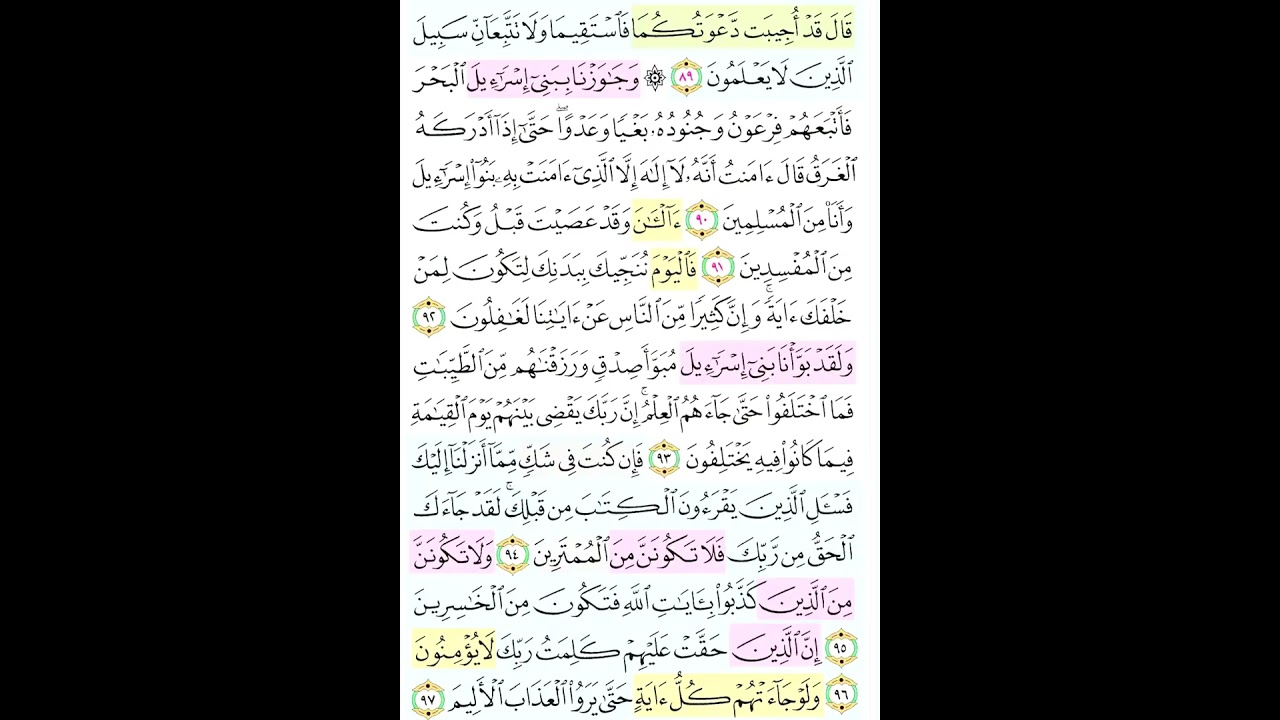 قَالَ قَدْ أُجِيبَت دَّعْوَتُكُمَا فَٱسْتَقِيمَا وَلَا تَتَّبِعَآنِّ سَبِيلَ
ٱلَّذِينَ لَا يَعْلَمُونَ ٨٩ ۞ وَجَٰوَزْنَا بِبَنِىٓ إِسْرَٰٓءِيلَ ٱلْبَحْرَ
فَأَتْبَعَهُمْ فِرْعَوْنُ وَجُنُودُهُۥ بَغْيًا وَعَدْوًا ۖ حَتَّىٰٓ إِذَآ أَدْرَكَهُ
ٱلْغَرَقُ قَالَ ءَامَنتُ أَنَّهُۥ لَآ إِلَٰهَ إِلَّا ٱلَّذِىٓ ءَامَنَتْ بِهِۦ بَنُوٓا۟ إِسْرَٰٓءِيلَ
وَأَنَا۠ مِنَ ٱلْمُسْلِمِينَ ٩٠ ءَآلْـَٰٔنَ وَقَدْ عَصَيْتَ قَبْلُ وَكُنتَ
مِنَ ٱلْمُفْسِدِينَ ٩١ فَٱلْيَوْمَ نُنَجِّيكَ بِبَدَنِكَ لِتَكُونَ لِمَنْ
خَلْفَكَ ءَايَةً ۚ وَإِنَّ كَثِيرًا مِّنَ ٱلنَّاسِ عَنْ ءَايَٰتِنَا لَغَٰفِلُونَ ٩٢
وَلَقَدْ بَوَّأْنَا بَنِىٓ إِسْرَٰٓءِيلَ مُبَوَّأَ صِدْقٍ وَرَزَقْنَٰهُم مِّنَ ٱلطَّيِّبَٰتِ
فَمَا ٱخْتَلَفُوا۟ حَتَّىٰ جَآءَهُمُ ٱلْعِلْمُ ۚ إِنَّ رَبَّكَ يَقْضِى بَيْنَهُمْ يَوْمَ ٱلْقِيَٰمَةِ
فِيمَا كَانُوا۟ فِيهِ يَخْتَلِفُونَ ٩٣ فَإِن كُنتَ فِى شَكٍّ مِّمَّآ أَنزَلْنَآ إِلَيْكَ
فَسْـَٔلِ ٱلَّذِينَ يَقْرَءُونَ ٱلْكِتَٰبَ مِن قَبْلِكَ ۚ لَقَدْ جَآءَكَ
ٱلْحَقُّ مِن رَّبِّكَ فَلَا تَكُونَنَّ مِنَ ٱلْمُمْتَرِينَ ٩٤ وَلَا تَكُونَنَّ
مِنَ ٱلَّذِينَ كَذَّبُوا۟ بِـَٔايَٰتِ ٱللَّهِ فَتَكُونَ مِنَ ٱلْخَٰسِرِينَ
٩٥ إِنَّ ٱلَّذِينَ حَقَّتْ عَلَيْهِمْ كَلِمَتُ رَبِّكَ لَا يُؤْمِنُونَ
٩٦ وَلَوْ جَآءَتْهُمْ كُلُّ ءَايَةٍ حَتَّىٰ يَرَوُا۟ ٱلْعَذَابَ ٱلْأَلِيمَ ٩٧